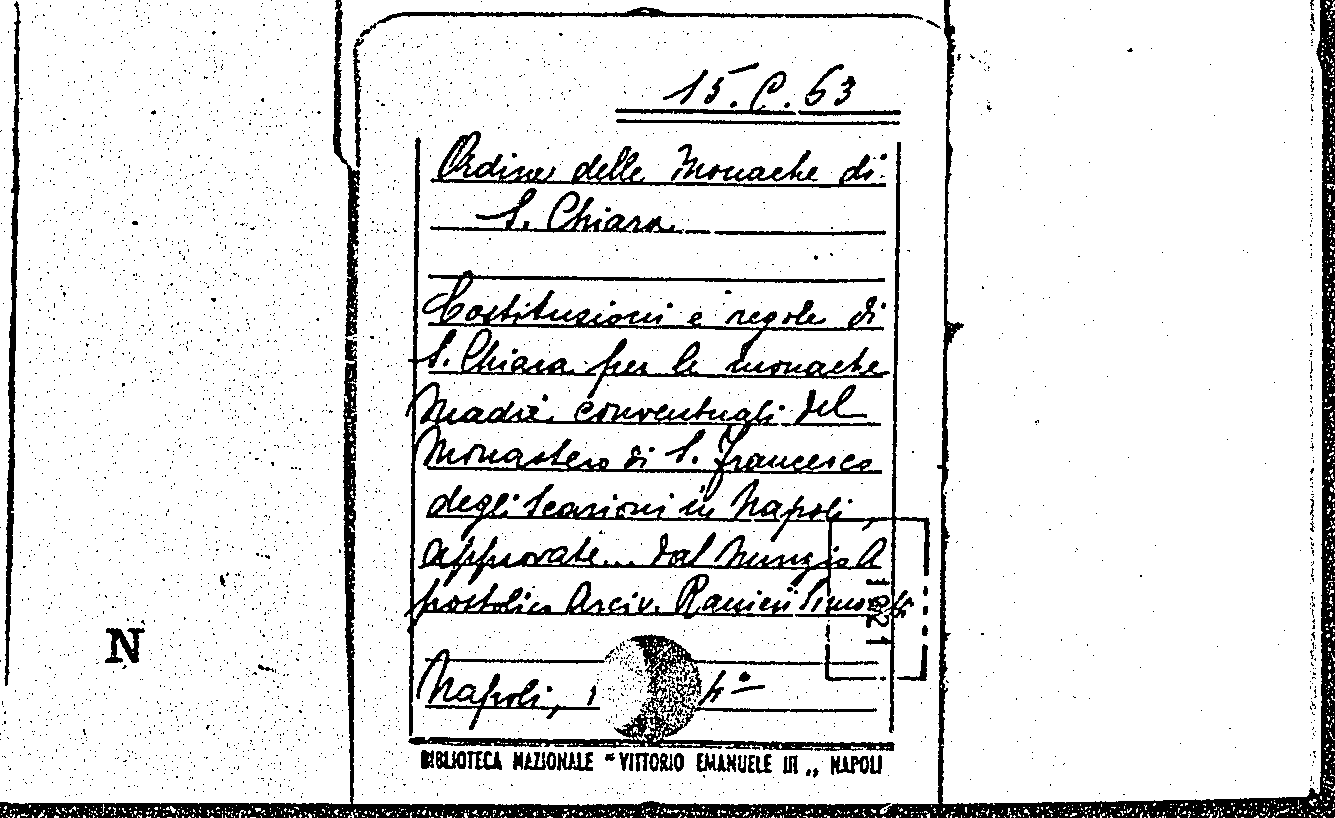 15. C. 63
Ordine delle Monache di
S. Chiara
Costituzioni e regole di
S. Chiara per le monache
Madri conventuali del
Monastero di S. Francesco
degli Scarioni in Napoli,
approvate... dal Nunzio A
postolico Arciv. Ranieri
1921
N
Napoli, 1
4º
BIBLIOTECA NAZIONALE "VITTORIO EMANUELE III„ NAPOLI